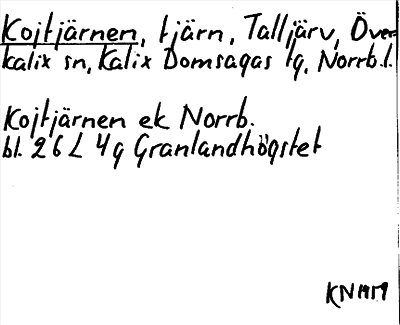 Kojtjärnen, tjärn, Talljärv, Över-
kalix sn, Kalix Domsagas tg, Norrb.l.
Kojtjärnen ek Norrb.
bl. 26 L 4g Granlandhögstet
KNMM